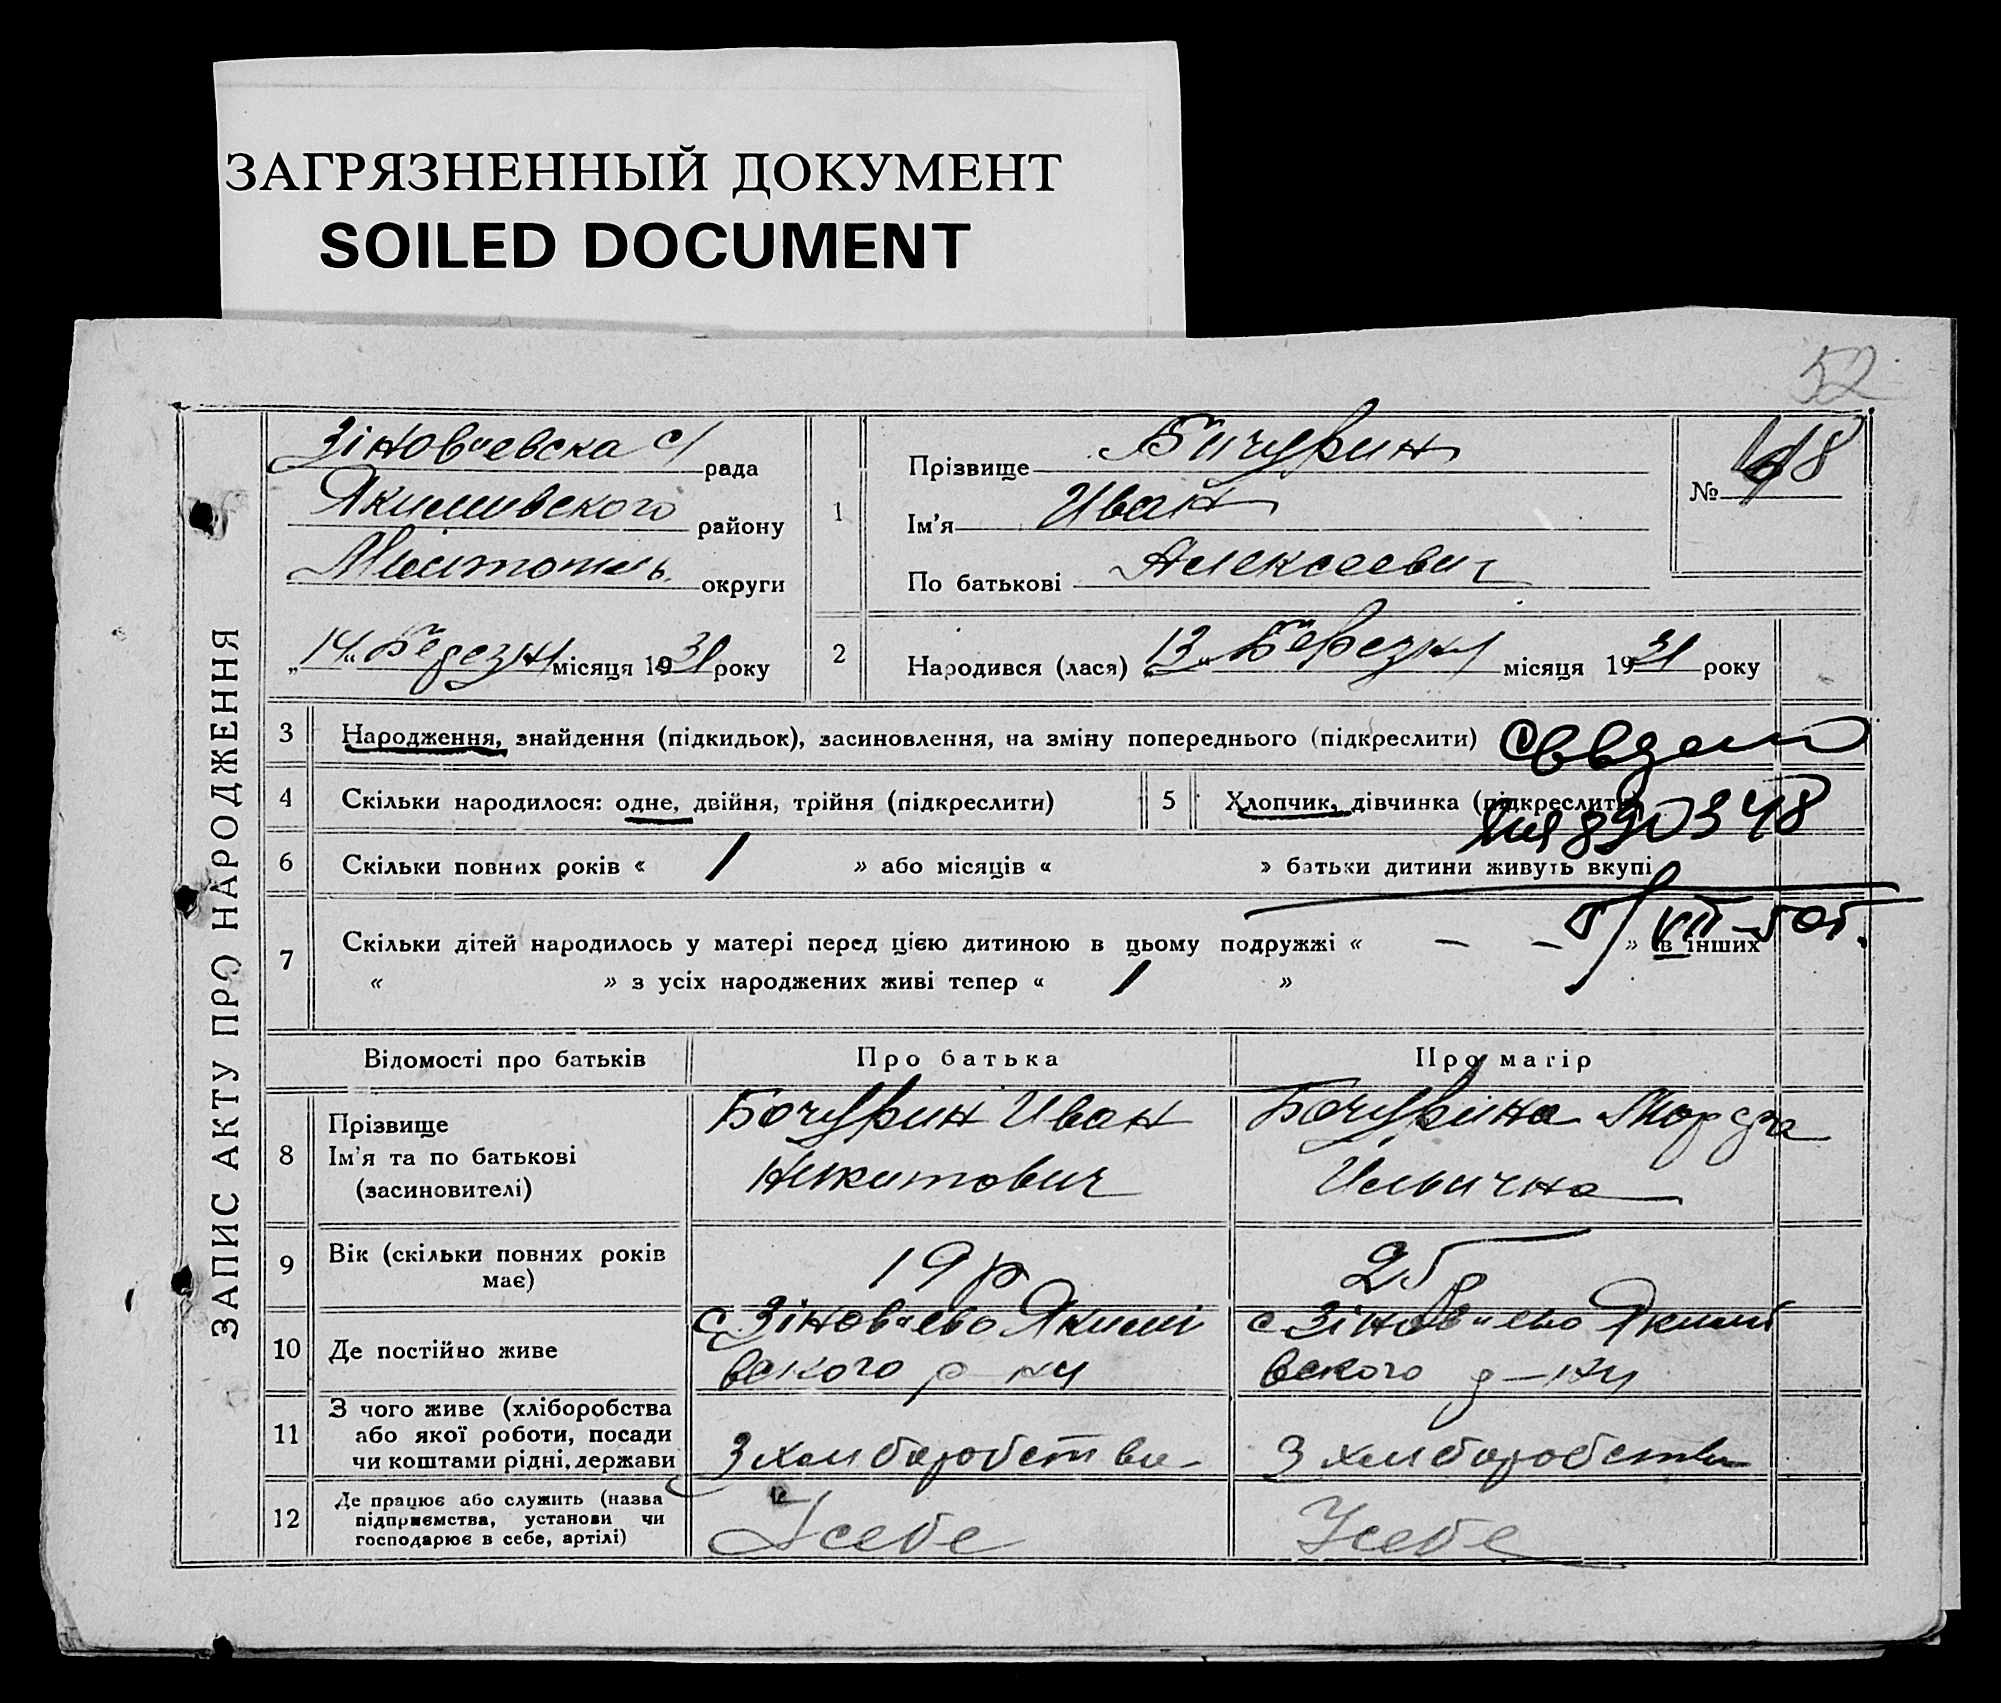 ЗАГРЯЗНЕННЫЙ ДОКУМЕНТ
SOILED DOCUMENT
52
ЗАПИС АКТУ ПРО НАРОДЖЕННЯ
Зіновьевска с/рада
Якимивского району
округи
„14“ Березня місяця 1931 року
1
Прізвище Бичурин
Ім'я Иван
По батькові Алексеевич
№ 18
2
Народився (лася) „13“ Березня місяця 1931 року
3 Народження, знайдення (підкидьок), засиновлення, на зміну попереднього (підкреслити)
4 Скільки народилося: одне, двійня, трійня (підкреслити)
5 Хлопчик, дівчинка (підкреслити)
890348
6 Скільки повних років « 1 » або місяців « » батьки дитини живуть вкупі
5/VII-50г.
7 Скільки дітей народилось у матері перед цією дитиною в цьому подружжі « — — » в інших
« » з усіх народжених живі тепер « 1 »
Відомості про батьків Про батька Про матір
8 Прізвище
Ім'я та по батькові
(засиновителі)
Бочурин Иван
Никитович
Бочурина
Ильична
9 Вік (скільки повних років
має)
19 р
25
10 Де постійно живе
с Зіновьево Якими
вского р-ну
с Зіновьево Якими
вского р-ну
11 З чого живе (хліборобства
або якої роботи, посади
чи коштами рідні, держави
З хлиборобства
З хлиборобства
12 Де працює або служить (назва
підприємства, установи чи
господарює в себе, артілі)
У себе
У себе